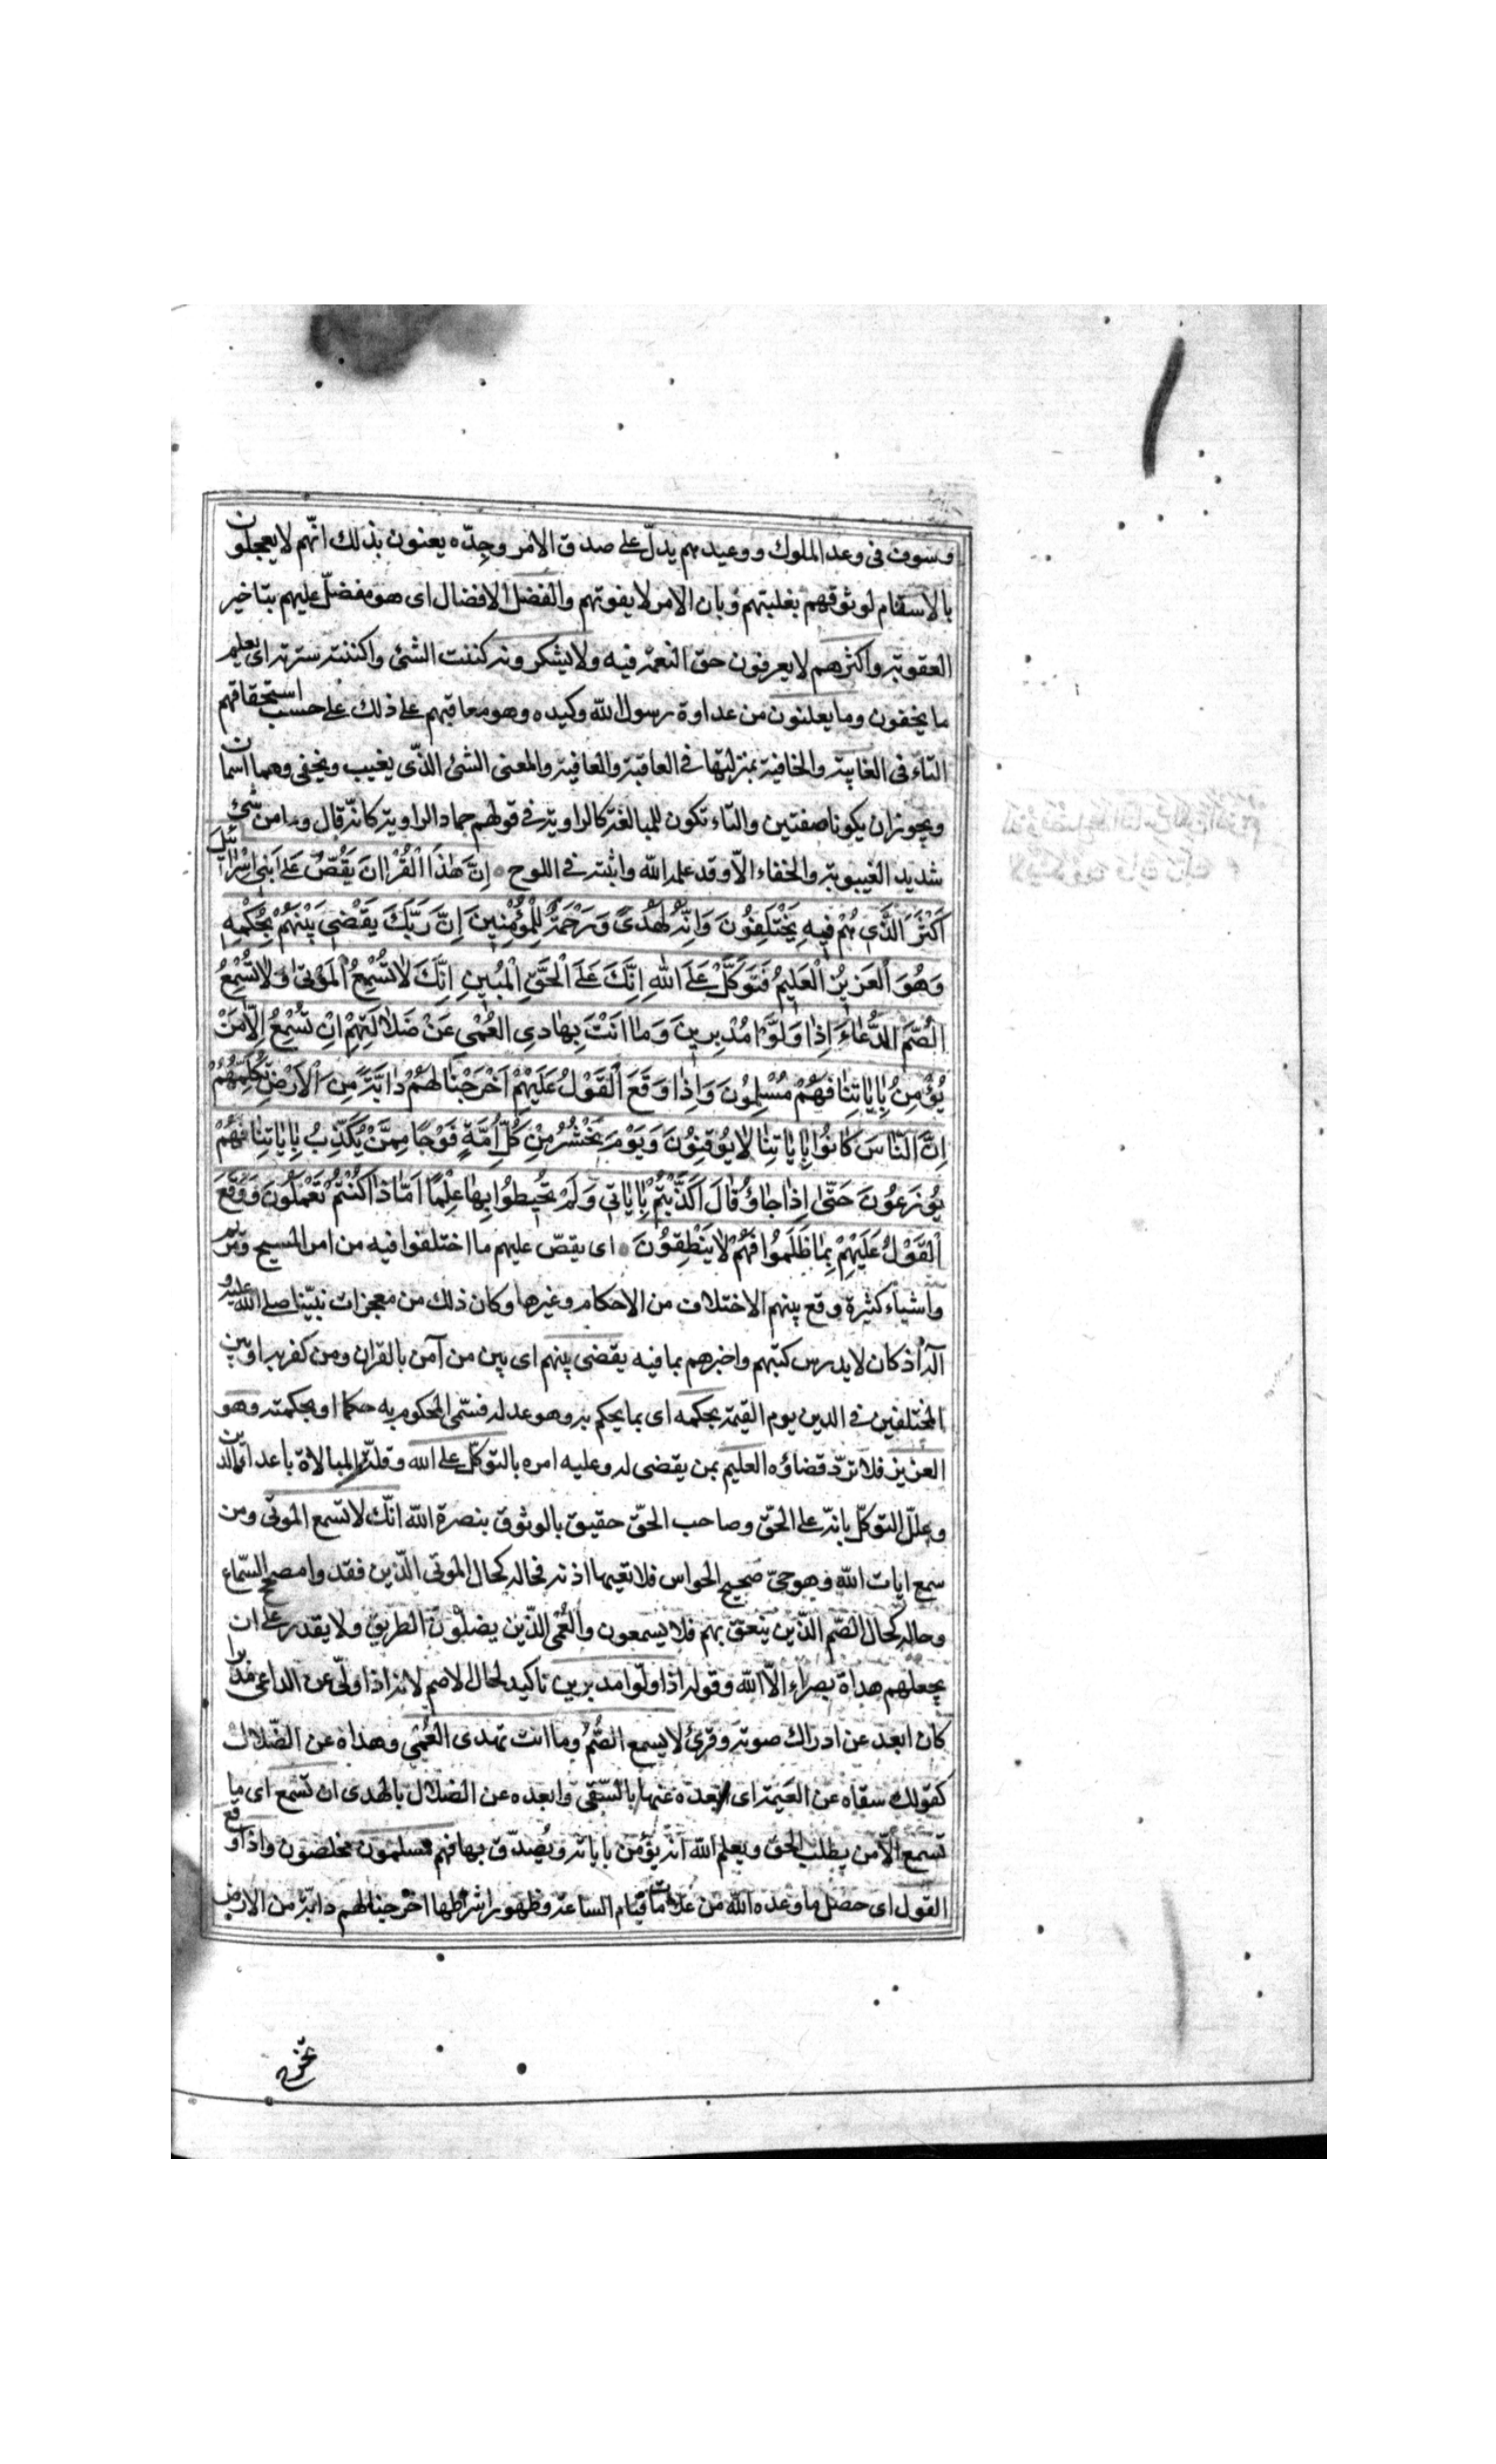 وسوف فى وعد الملوك ووعيدهم يدلّ على صدق الامر وجدّه يعنون بذلك انّهم لا يعجلون
بالانتقام لوثوقهم بغلبتهم وبان الامر لا يفوتهم والفضل الافضال اى هو مفضل عليهم بتاخير
العقوبة واكثرهم لا يعرفون حق النعمة فيه ولا يشكرونه كننت الشئ واكننته سترته اى يعلم
ما يخفون وما يعلنون من عداوة رسول الله وكيده وهو معاقبهم على ذلك على حسب استحقاقهم
التاء فى الغايبة والخافية بمنزلتها فى العاقبة والعافية والمعنى الشئ الذّى يغيب ويخفى وهما اسمان
ويجوز ان يكونا صفتين والتاء تكون للمبالغة كالراوية فى قولهم حماد الراوية كانّه قال وما من شئ
شديد الغيبوبة والخفاء الّا وقد علمه الله واثبته فى اللوح اِنَّ هٰذَا الْقُرْاٰنَ يَقُصُّ عَلىٰ بَنِى اِسْرٰائيلَ
اَكْثَرَ الَّذى هُمْ فيهِ يَخْتَلِفُونَ وَاِنَّهُ لَهُدىً وَرَحْمَةٌ لِلْمُؤْمِنينَ اِنَّ رَبَّكَ يَقْضى بَيْنَهُمْ بِحُكْمِهِ
وَهُوَ الْعَزيزُ الْعَليمُ فَتَوَكَّلْ عَلَى اللهِ اِنَّكَ عَلَى الْحَقِّ الْمُبينِ اِنَّكَ لاٰ تُسْمِعُ الْمَوْتىٰ وَلاٰ تُسْمِعُ
الصُّمَّ الدُّعٰاءَ اِذٰا وَلَّوْا مُدْبِرينَ وَمٰا اَنْتَ بِهٰادِى الْعُمْىِ عَنْ ضَلاٰلَتِهِمْ اِنْ تُسْمِعُ اِلّاٰ مَنْ
يُؤْمِنُ بِاٰيٰاتِنٰا فَهُمْ مُسْلِمُونَ وَاِذٰا وَقَعَ الْقَوْلُ عَلَيْهِمْ اَخْرَجْنٰا لَهُمْ دٰابَّةً مِنَ الْاَرْضِ تُكَلِّمُهُمْ
اِنَّ النّٰاسَ كٰانُوا بِاٰيٰاتِنٰا لاٰ يُوقِنُونَ وَيَوْمَ نَحْشُرُ مِنْ كُلِّ اُمَّةٍ فَوْجًا مِمَّنْ يُكَذِّبُ بِاٰيٰاتِنٰا فَهُمْ
يُوزَعُونَ حَتّىٰ اِذٰا جٰاؤُ قٰالَ اَكَذَّبْتُمْ بِاٰيٰاتى وَلَمْ تُحيطُوا بِهٰا عِلْمًا اَمّٰا ذٰا كُنْتُمْ تَعْمَلُونَ وَوَقَعَ
الْقَوْلُ عَلَيْهِمْ بِمٰا ظَلَمُوا فَهُمْ لاٰ يَنْطِقُونَ اى يقصّ عليهم ما اختلفوا فيه من امر المسيح ومريم
واشياء كثيرة وقع بينهم الاختلاف من الاحكام وغيرها وكان ذلك من معجزات نبيّنا صلى الله عليه و
آله اذ كان لا يدرس كتبهم واخبرهم بما فيه يقضى بينهم اى بين من آمن بالقران ومن كفر به او بين
المختلفين فى الدين يوم القيمة بحكمه اى بما يحكم به وهو عدله فسمّى المحكوم به حكما او بحكمته وهو
العزيز فلا تردّ قضاؤه العليم بمن يقضى له وعليه امره بالتوكّل على الله وقلّة المبالاة باعداء الدين
وعلّل التوكّل بانّه على الحقّ وصاحب الحقّ حقيق بالوثوق بنصرة الله انّك لا تسمع الموتى ومن
سمع ايات الله وهو حىّ صحيح الحواس فلا تعيها اذنه فحاله كحال الموتى الّذين فقدوا مصحح السّماع
وحاله كحال الصّم الّذين ينعق بهم فلا يسمعون والعُمى الذّين يضلّون الطريق ولا يقدر على ان
يجعلهم هداة بصراء الّا الله وقوله اذا ولّوا مدبرين تاكيد لحال لاصم لانه اذا ولّى عن الداعى مدبرا
كان ابعد عن ادراك صوته وقرئ لا يسمع الصُّمُ وما انت تهدى العُمْى وهداه عن الضّلال
كقولك سقاه عن العيمة اى ابعده عنها بالسّقى وابعده عن الضلال بالهدى ان تسمع اى ما
تسمع الّا من يطلب الحق ويعلم الله انّه يؤمن باياته ويُصدّق بها فهم مسلمون مخلصون واذا وقع
القول اى حصل ما وعده الله من علامات قيام الساعة وظهور اشراطها اخرجنا لهم دابّة من الارض
تخرج